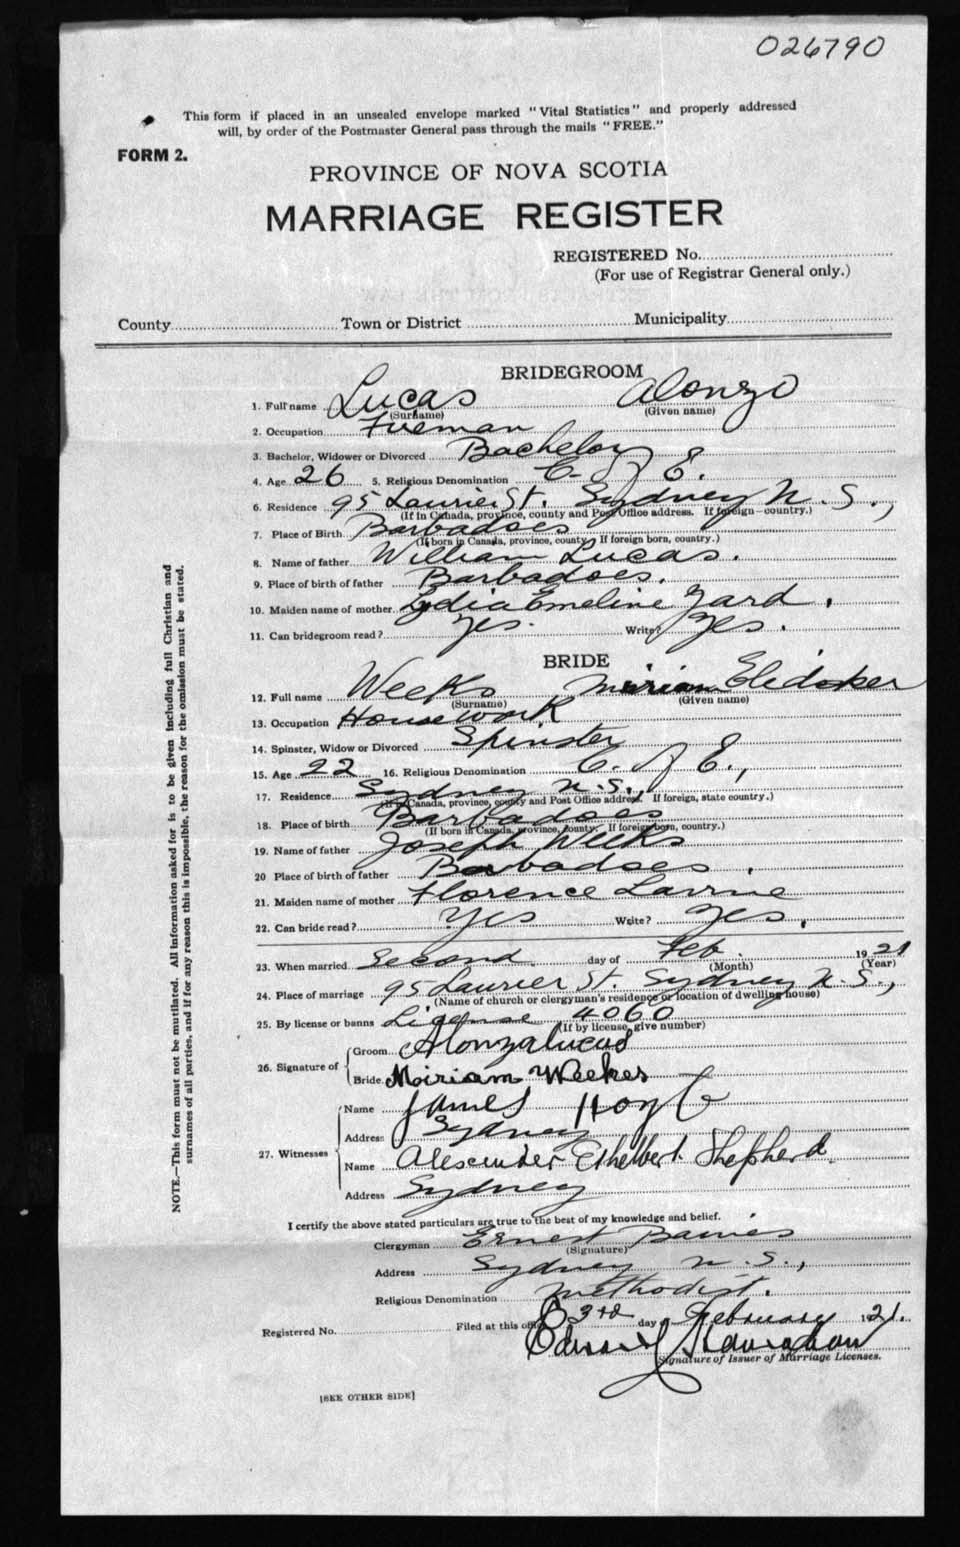 026790
This form if placed in an unsealed envelope marked "Vital Statistics" and properly addressed
will, by order of the Postmaster General pass through the mails "FREE."
FORM 2.
PROVINCE OF NOVA SCOTIA
MARRIAGE REGISTER
REGISTERED No.
(For use of Registrar General only.)
County Town or District Municipality
BRIDEGROOM
1. Full name Lucas Alonzo
(Surname) (Given name)
2. Occupation Fireman
3. Bachelor, Widower or Divorced Bachelor
4. Age 26 5. Religious Denomination C. of E.
6. Residence 95 Laurier St. Sydney N. S.,
(If in Canada, province, county and Post Office address. If foreign—country.)
7. Place of Birth Barbadoes
(If born in Canada, province, county. If foreign born, country.)
8. Name of father William Lucas.
9. Place of birth of father Barbadoes.
10. Maiden name of mother Lydia Emeline Yard.
11. Can bridegroom read? Yes. Write? Yes.
BRIDE
12. Full name Weeks Miriam
(Surname) (Given name)
13. Occupation Housework
14. Spinster, Widow or Divorced Spinster
15. Age 22 16. Religious Denomination C. of E.,
17. Residence Sydney N. S.,
(If in Canada, province, county and Post Office address. If foreign, state country.)
18. Place of birth Barbadoes
(If born in Canada, province, county. If foreign born, country.)
19. Name of father Joseph Weeks
20 Place of birth of father Barbadoes.
21. Maiden name of mother Florence
22. Can bride read? Yes Write? Yes.
23. When married Second day of Feb. 1921
(Month) (Year)
24. Place of marriage 95 Laurier St. Sydney N. S.,
(Name of church or clergyman's residence or location of dwelling house)
25. By license or banns License 4060
(If by license, give number)
26. Signature of Groom Alonza Lucas
Bride Moiriam Weekes
27. Witnesses
Name James
Address Sydney
Name Alexcunder Ethelbert Shepherd.
Address Sydney
I certify the above stated particulars are true to the best of my knowledge and belief.
Clergyman Ernest
(Signature)
Address Sydney N. S.,
Religious Denomination Methodist.
Registered No. Filed at this office 3rd day of February 1921.
Edward
Signature of Issuer of Marriage Licenses.
[SEE OTHER SIDE]
NOTE.—This form must not be mutilated. All information asked for is to be given including full Christian and
surnames of all parties, and if for any reason this is impossible, the reason for the omission must be stated.